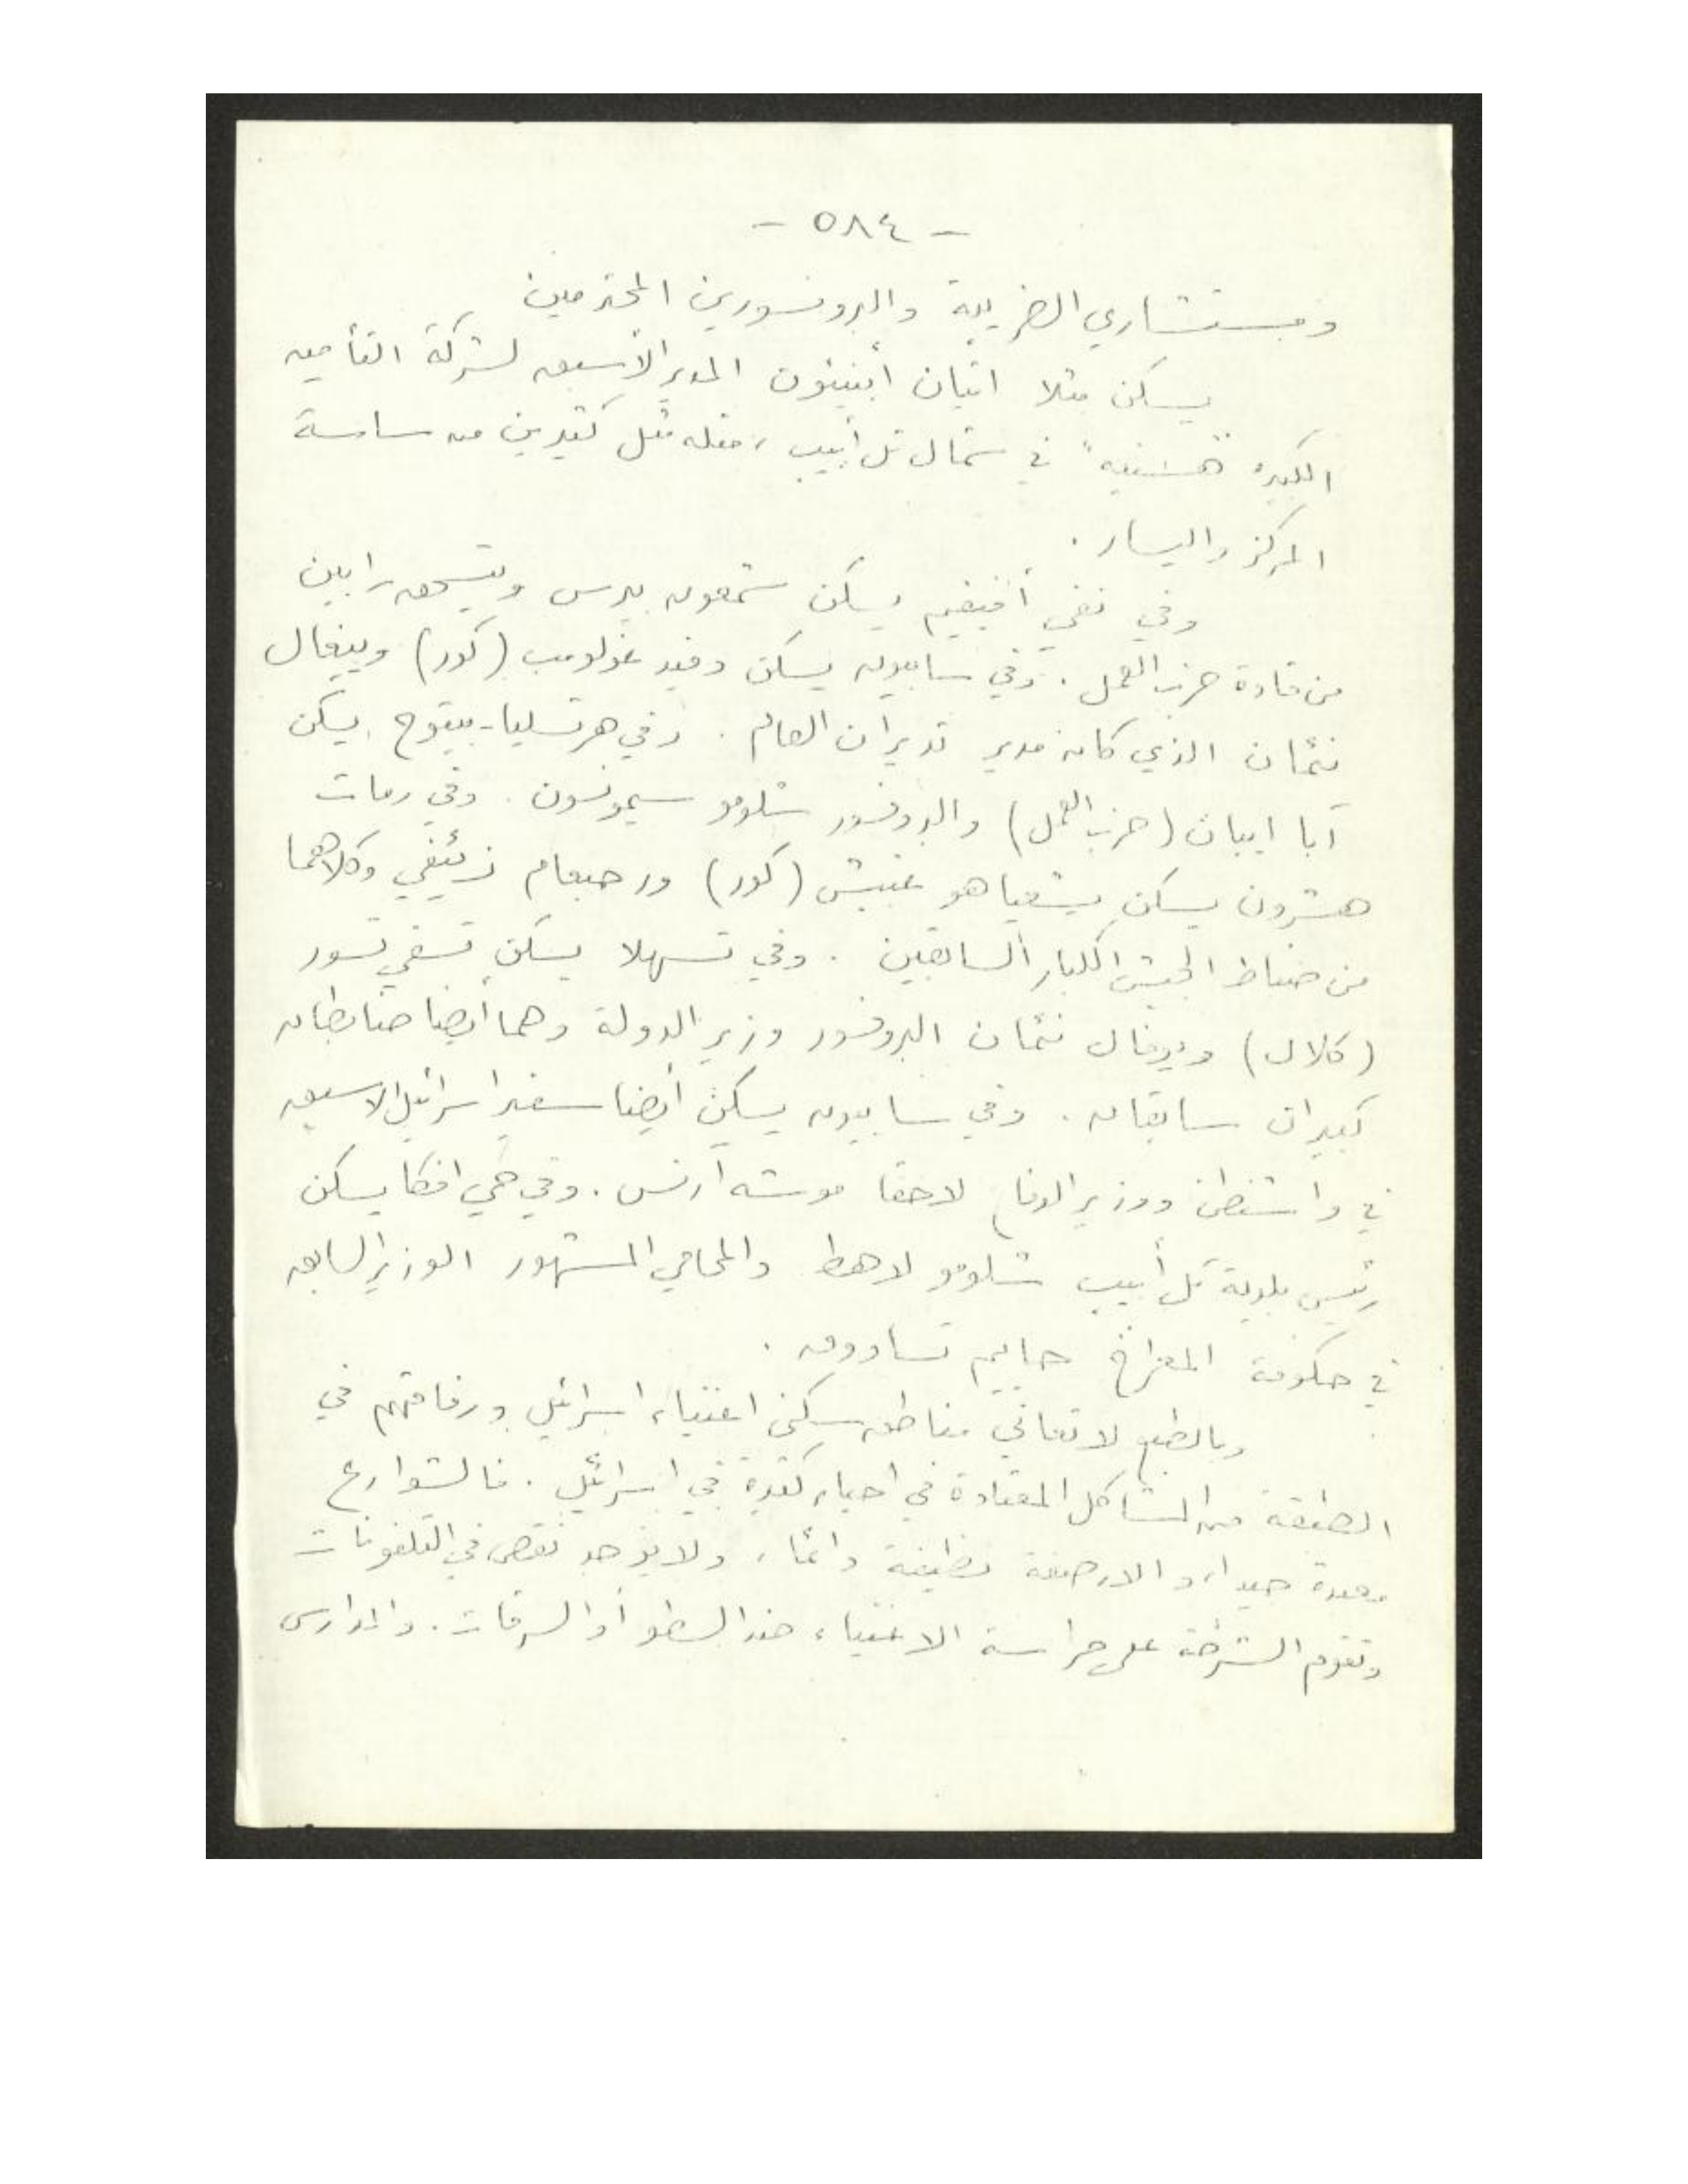 - ٥٨٤ -
ومستشاري الضريبة والبروفسورين المحترمين
يسكن مثلا ايتان أبنيئون المدير الأسبق لشركة التأمين
الكبيرة "هسنيه" في شمال تل أبيب، مثله مثل كثيرين من ساسة
المركز واليسار.
وفي نفي أفيفيم يسكن شمعون بيرس ويتسحق رابين
من قادة حزب العمل. وفي سابيون يسكن دفيد غولومب (كور) وييغال
نئمان الذي كان مدير تديران العام. وفي هرتسليا - بيتوح يسكن
آبا ايبان (حزب العمل) والبروفسور شلومو سيمونسون. وفي رمات
هشرون يسكن يشعياهو غبيش (كور) ورحبعام زئيفي وكلاهما
من ضباط الجيش الكبار السابقين. وفي تسهلا يسكن تسفي تسور
(كلال) ويوفال نئمان البروفسور وزير الدولة وهما أيضا ضابطان
كبيران سابقان. وفي سابيون يسكن أيضا سفير اسرائيل الاسبق
في واشنطن ووزير الدفاع لاحقا موشه آرنس. وفي حي افكا يسكن
رئيس بلدية تل أبيب شلومو لاهط والمحامي المشهور الوزير السابق
في حكومة المعراخ حاييم تسادوق.
وبالطبع لا تعاني مناطق سكن اغنياء اسرائيل ورفاقهم في
الطبقة من المشاكل المعتادة في احياء كثيرة في اسرائيل. فالشوارع
معبدة جيدا، والارصفة نظيفة دائما، ولا يوجد نقص في التلفونات
وتقوم الشرطة على حراسة الاغنياء ضد السطو أو السرقات. والمدارس